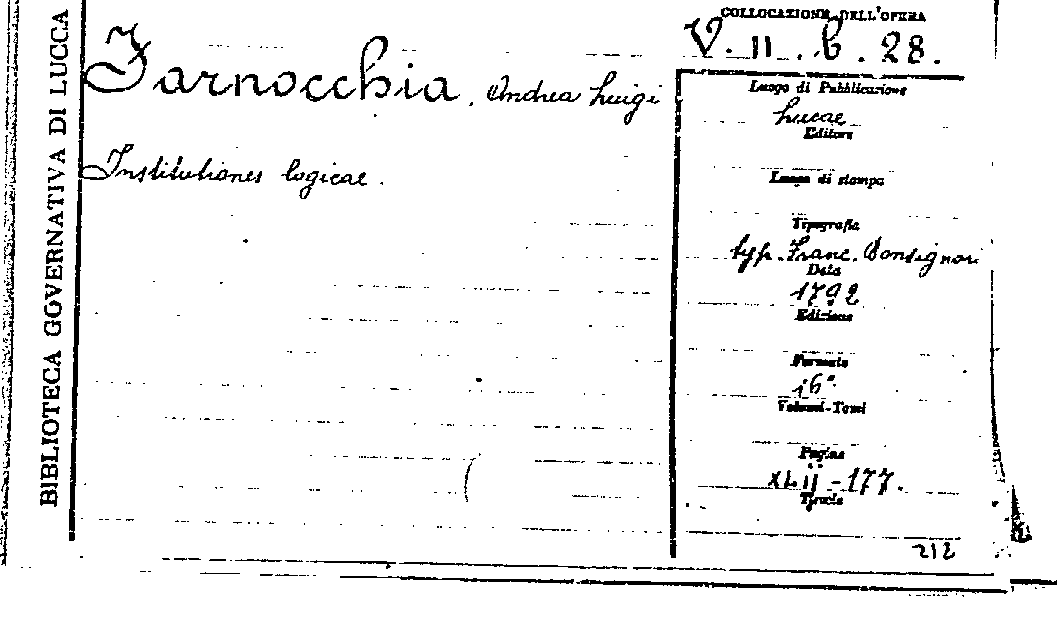 BIBLIOTECA GOVERNATIVA DI LUCCA
COLLOCAZIONE DELL'OPERA
V. II. b. 28.
Farnocchia, Andrea Luigi
Institutiones logicae.
Luogo di Pubblicazione
Lucae
Editore
Luogo di stampa
Tipografia
typ. Franc. Bonsignori
Data
1792
Edizione
Formato
16°
Volumi-Tomi
Pagine
XLII - 177.
Tavole
212